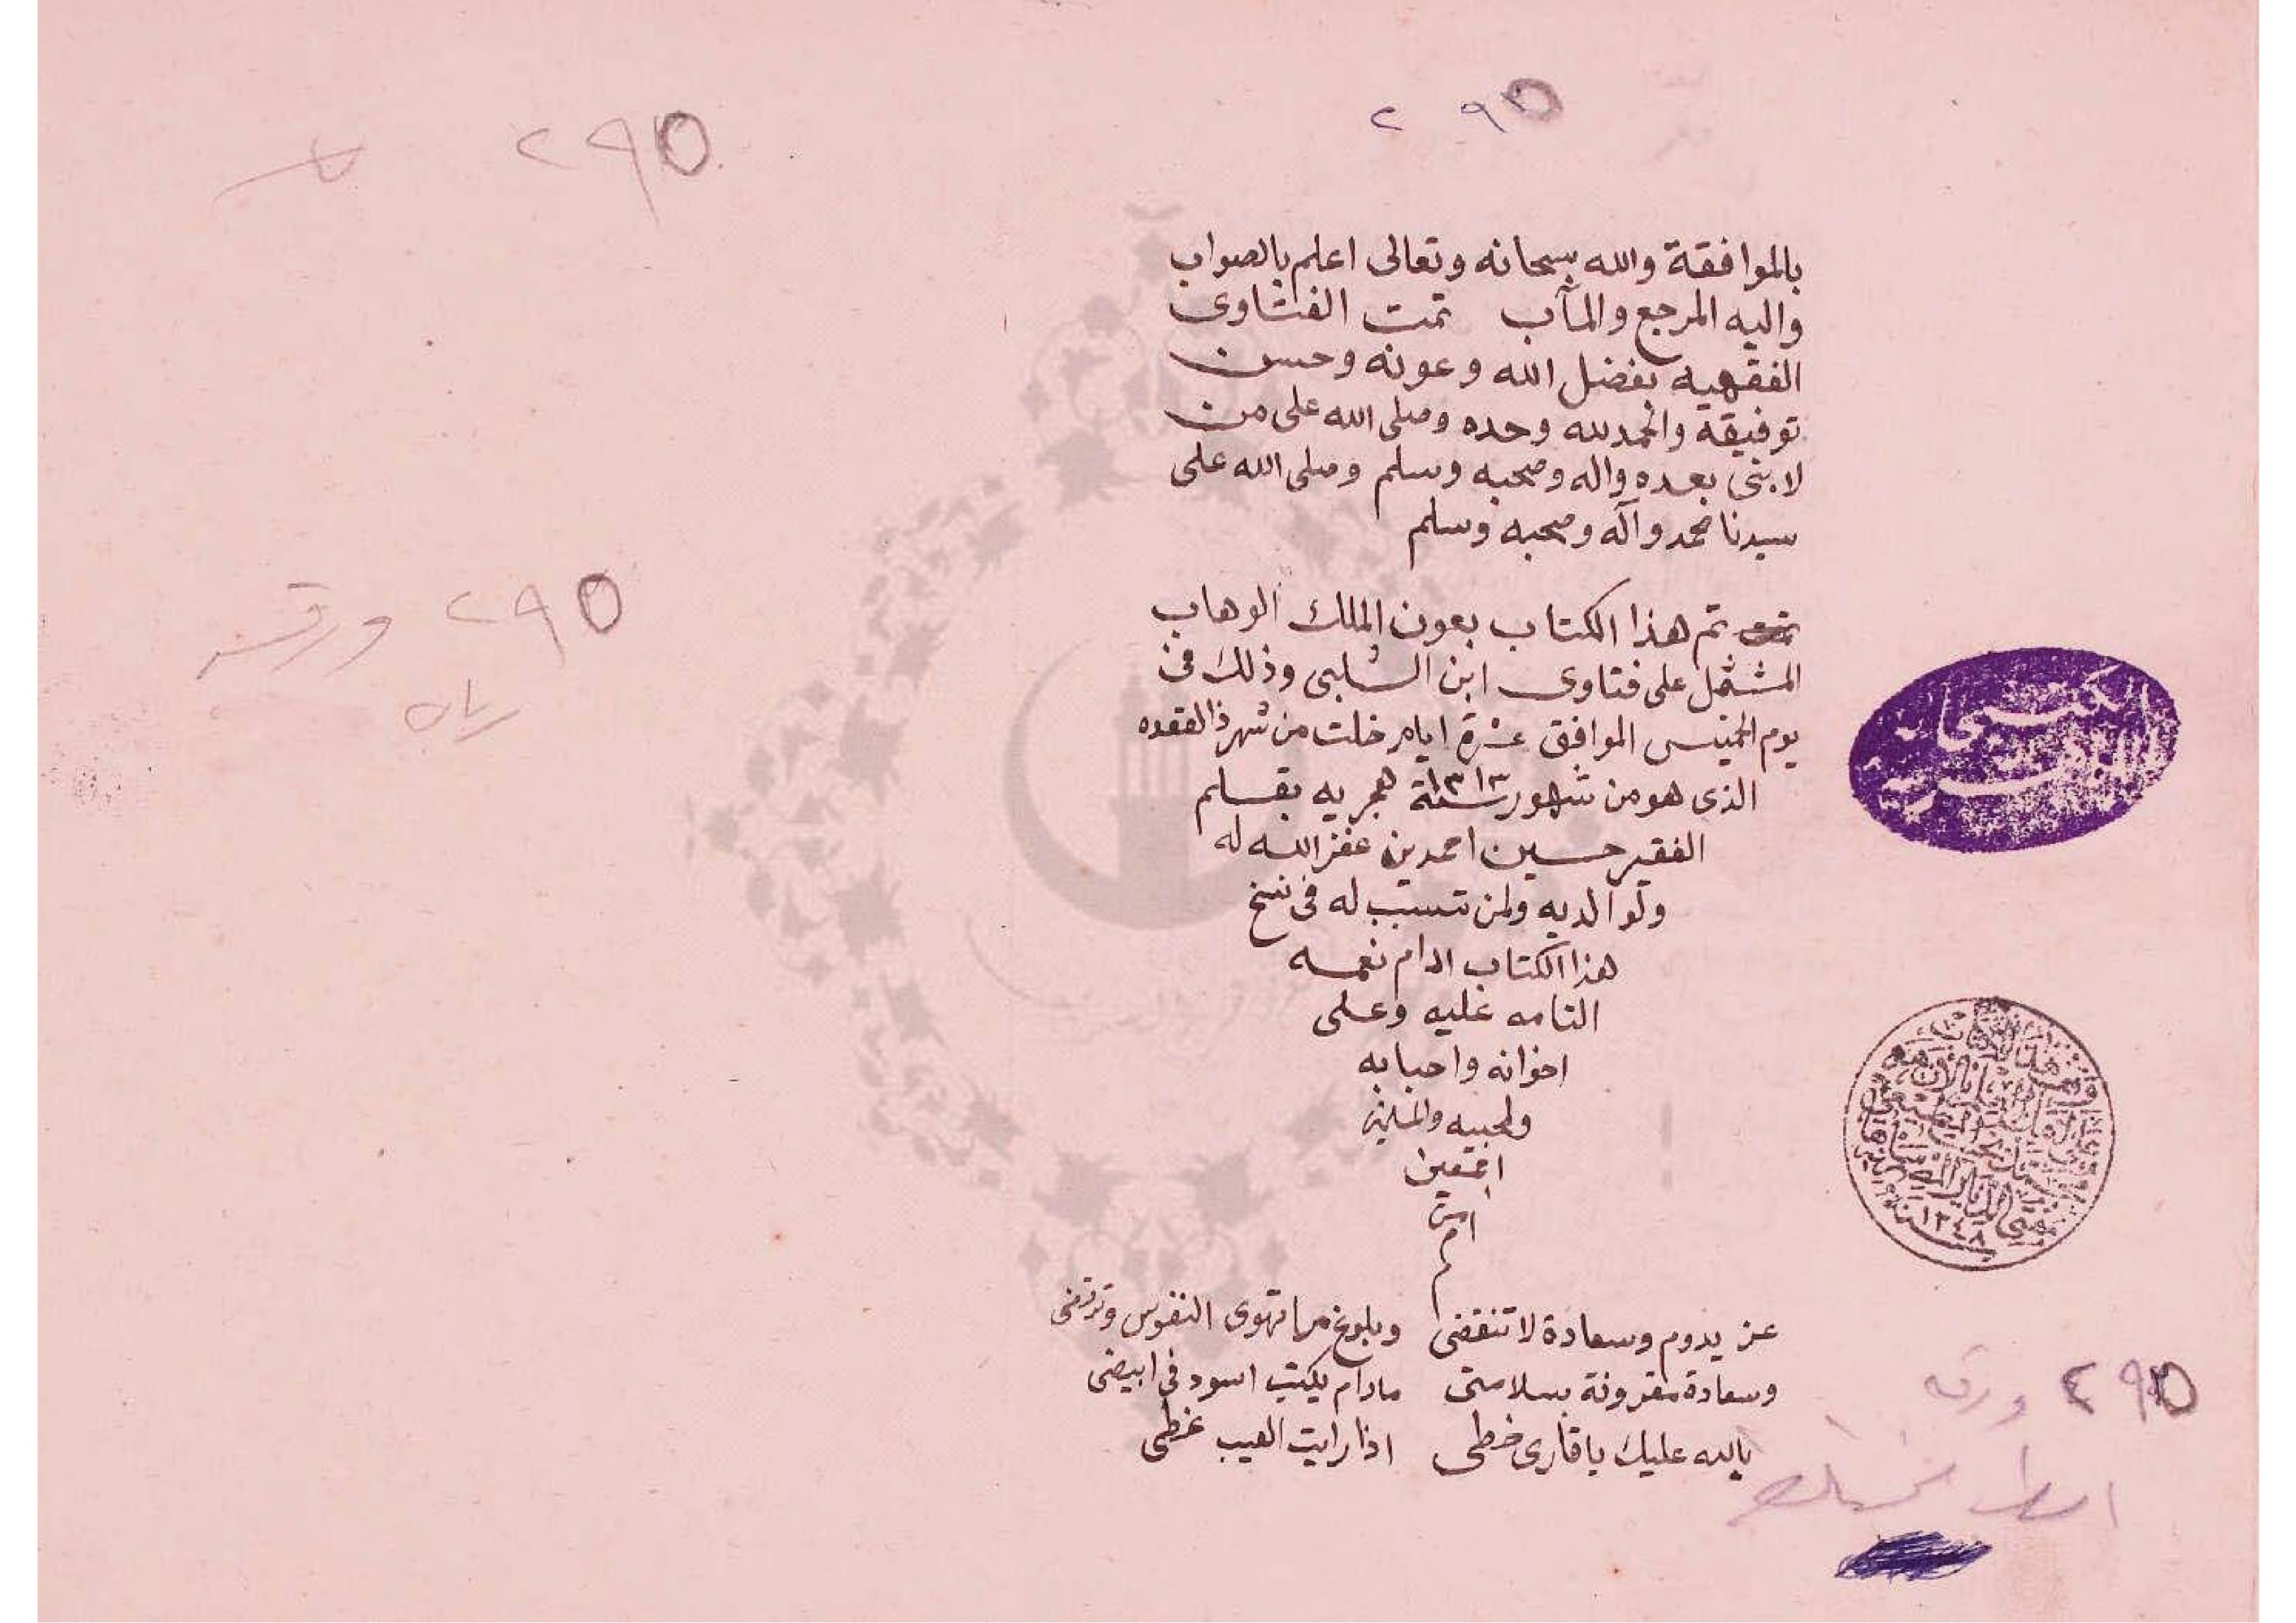 ٢٩٥
٢٩٥
بالموافقة والله سبحانه وتعالى اعلم بالصواب
واليه المرجع والمآب تمت الفتاوى
الفقهيه بفضل الله وعونه وحسن
توفيقة والحمد لله وحده وصلى الله على من
لا نبى بعده واله وصحبه وسلم وصلى الله على
سيدنا محمد وآله وصحبه وسلم
تم هذا الكتاب بعون الملك الوهاب
المشتمل على فتاوى ابن الشلبى وذلك فى
يوم الخميس الموافق عشرة ايام خلت من شهر ذالقعده
الذى هو من شهور سنة ١٣١٣ هجريه بقلم
الفقير حسين احمدين غفر الله له
ولوالديه ولمن تسبب له فى نسخ
هذا الكتاب ادام نعمه
التامه عليه وعلى
اخوانه واحبابه
ولمحبيه والمسلمين
اجمعين
امين
م
عز يدوم وسعادة لا تنقضى وبلوغ ما تهوى النفوس وترتضى
وسعادة مقرونة بسلامتى مادام يكتب اسود فى ابيضى
بالله عليك يا قارى خطى اذا رايت العيب غطى
٢٩٥ ورقه
٢٩٥ ورقه
سنة ١٣٤٨